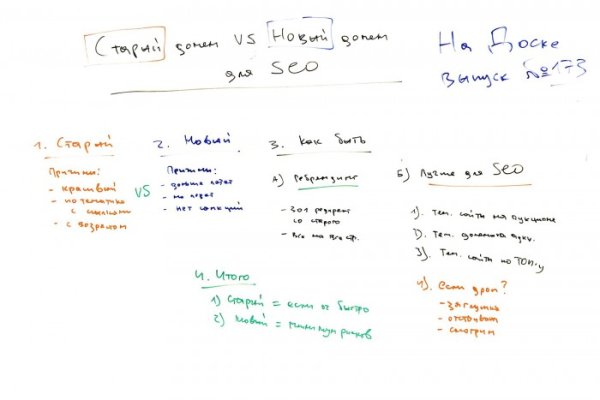 Старый домен VS Новый домен
для SEO
На Доске
выпуск №173
1. Старый
Причины:
- красивый
- по тематике
с ссылками
- с возрастом
VS
2. Новый
Причины:
- дольше
- не
- нет санкций
3. Как быть
А) Ребрендинг
- 301 редирект
со старого
- Все на все стр.
Б) Лучше для SEO
1). Тем. сайты на аукционе
2). Тем. домены аукц.
3). Тем. сайты по ТОП-у
4). если дроп?
- заглушка
- отстаивать
- смотрим
4. Итого
1) Старый = если ок быстро
2) Новый = минимум рисков